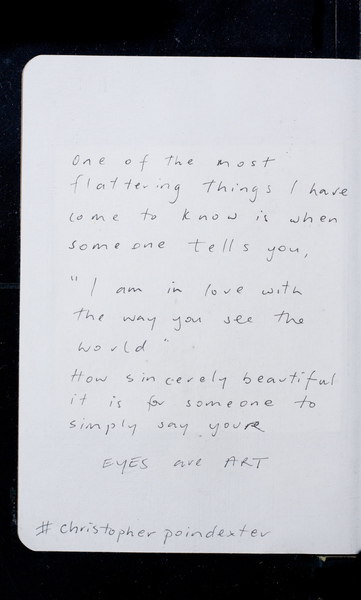 one of the most
flattering things I have
come to know is when
someone tells you,
"I am in love with
the way you see the
world"
How sincerely beautiful
it is for someone to
simply say youre
EYES are ART
# christopher poindexter